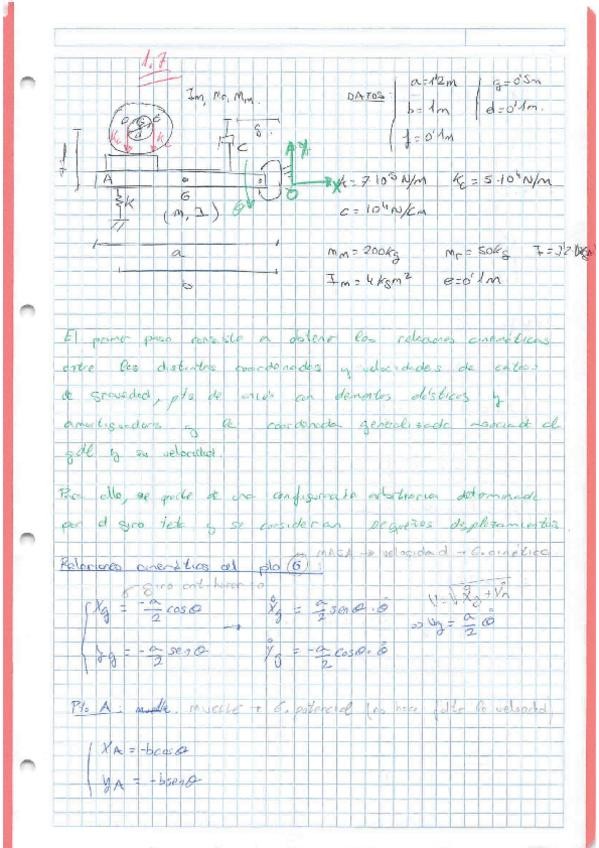 1.7
Im, Mr, Mm.
DATOS:
a=1'2m
b=1m
f=0'1m
g=0'5m
d=0'1m.
C
A
G
K
(m, I)
θ
O
X
a
b
K=7·10⁵N/m
c=10⁴N/cm
mm=200kg
mr=50kg
Im=4kgm²
e=0'1m
El primer paso consiste en obtener las relaciones cinemáticas
entre las distintas coordenadas y velocidades de centros
de gravedad, ptos de unión con elementos elásticos y
amortiguadores y la coordenada generalizada asociada al
gdl y su velocidad.
Para ello, se parte de una configuración arbitraria determinada
por el giro teta y se consideran pequeños desplazamientos.
MASA → velocidad → E.cinética
Relaciones cinemáticas del pto G:
giro antihorario
Xg = -a/2 cosθ
Ẋg = a/2 senθ·θ̇
→
⇒ Vg = a/2 θ̇
Yg = -a/2 senθ
Ẏg = -a/2 cosθ·θ̇
Pto A: muelle → E.potencial (no hace falta la velocidad)
XA = -bcosθ
YA = -bsenθ